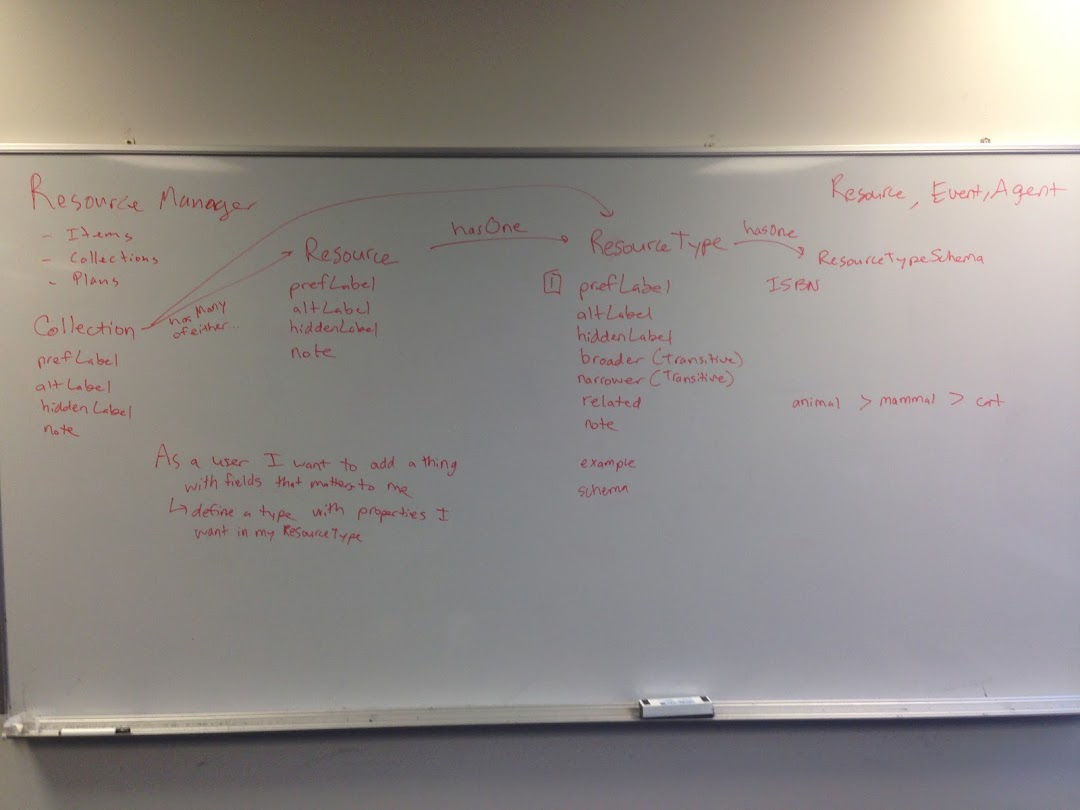 Resource Manager
- Items
- Collections
- Plans
Collection
prefLabel
altLabel
hiddenLabel
note
has Many
of either...
Resource
prefLabel
altLabel
hiddenLabel
note
hasOne
ResourceType
1
prefLabel
altLabel
hiddenLabel
broader (transitive)
narrower (transitive)
related
note
example
schema
hasOne
ResourceTypeSchema
ISBN
Resource, Event, Agent
animal > mammal > cat
As a user I want to add a thing
with fields that matters to me
↳ define a type with properties I
want in my ResourceType